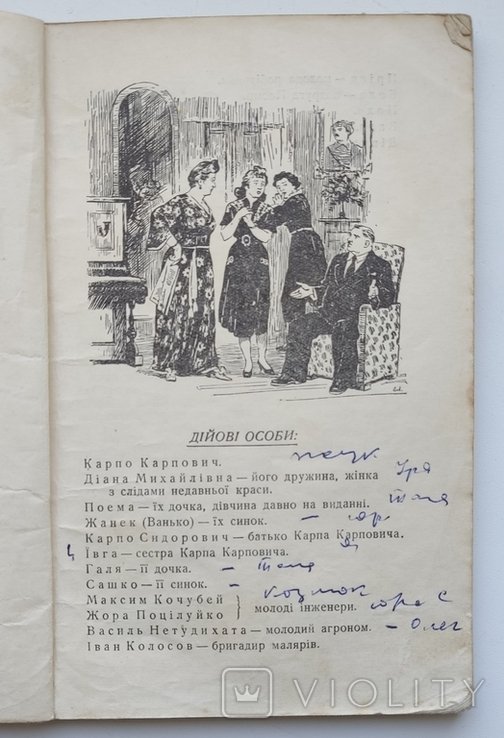 ДІЙОВІ ОСОБИ:
Карпо Карпович.
Діана Михайлівна — його дружина, жінка
з слідами недавньої краси.
Поема — їх дочка, дівчина давно на виданні.
Жанек (Ванько) — їх синок.
Карпо Сидорович — батько Карпа Карповича.
Ївга — сестра Карпа Карповича.
Галя — її дочка. - Таня
Сашко — її синок. -
Максим Кочубей
Жора Поцілуйко } молоді інженери.
Василь Нетудихата — молодий агроном. - Олег
Іван Колосов — бригадир малярів.
VIOLITY